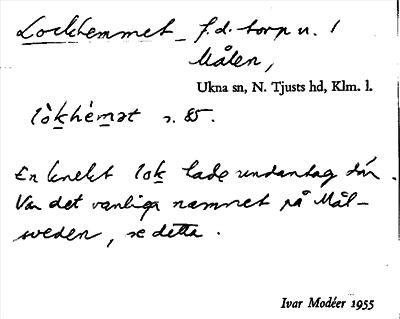 Lockhemmet – f.d. torp u. 1
Målen,
Ukna sn, N. Tjusts hd, Klm. l.
lòkhémət s. 85.
En knekt lok hade undantag där.
Var det vanliga namnet på Mål-
sveden, se detta.
Ivar Modéer 1955